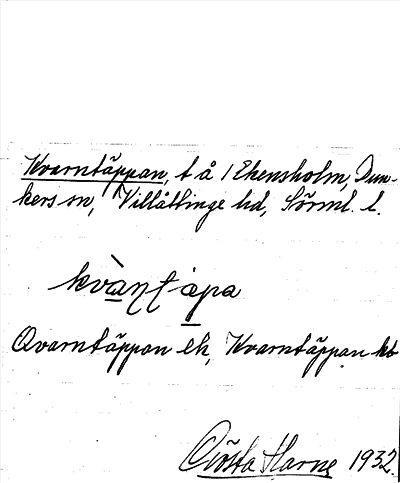 Kvarntäppan, t å 1 Ekensholm, Dun-
kers sn, Villåttinge hd, Sörml. l.
kvàɳtapa
Qvarntäppan ek, Kvarntäppan kb
Gösta Harne 1932.